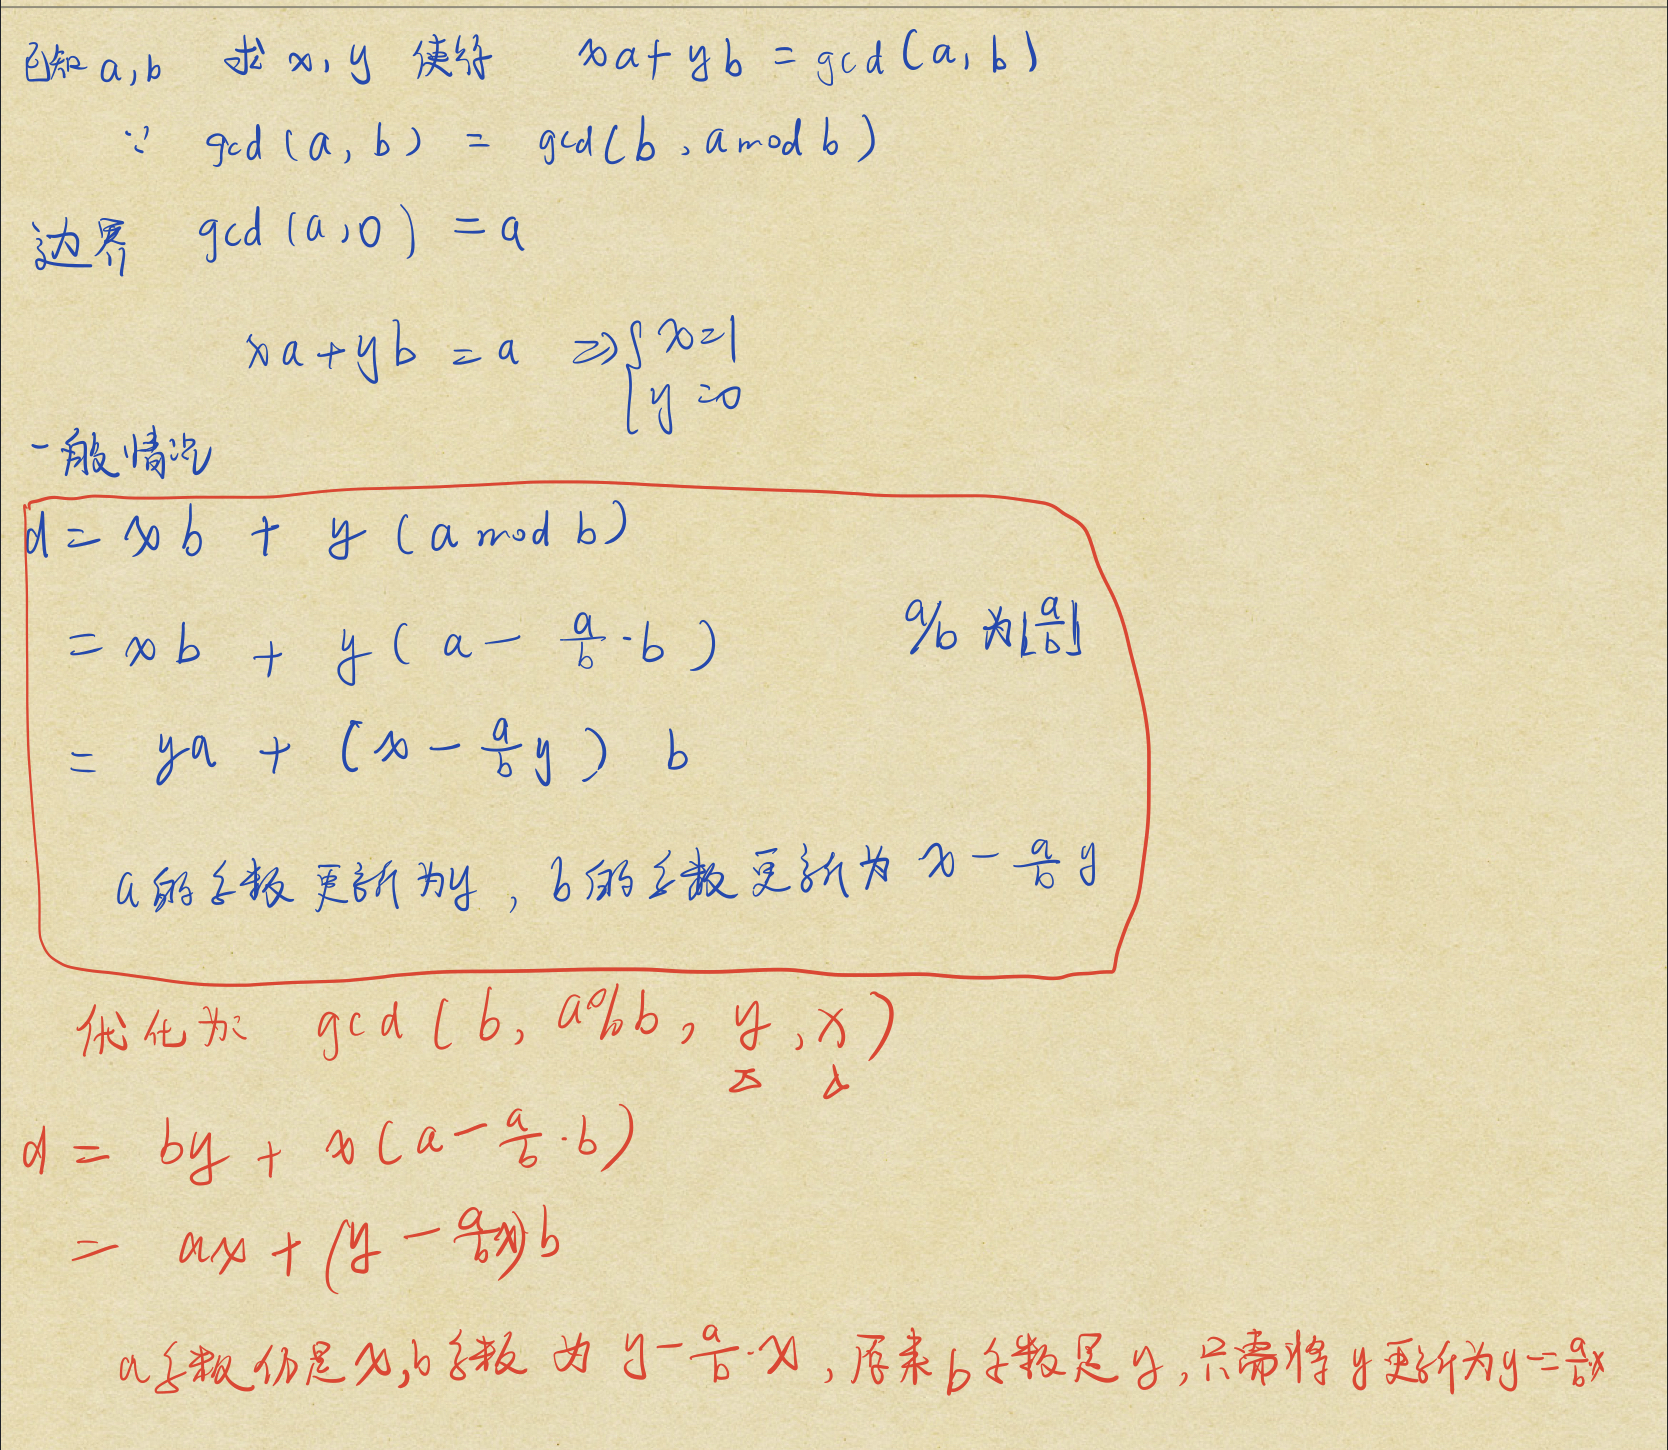 已知 a,b 求 x, y 使得 xa + yb = gcd(a, b)
∵ gcd(a, b) = gcd(b, a mod b)
边界 gcd(a, 0) = a
xa + yb = a ⇒ { x=1
y=0
一般情况
d = xb + y(a mod b)
= xb + y(a - a/b · b) a/b 为 [a/b]
= ya + (x - a/b y) b
a的系数更新为y, b的系数更新为 x - a/b y
优化为: gcd(b, a%b, y, x)
d = by + x(a - a/b · b)
= ax + (y - a/b x) b
a系数仍是x, b系数为 y - a/b · x, 原来b系数是y, 只需将y更新为y -= a/b · x